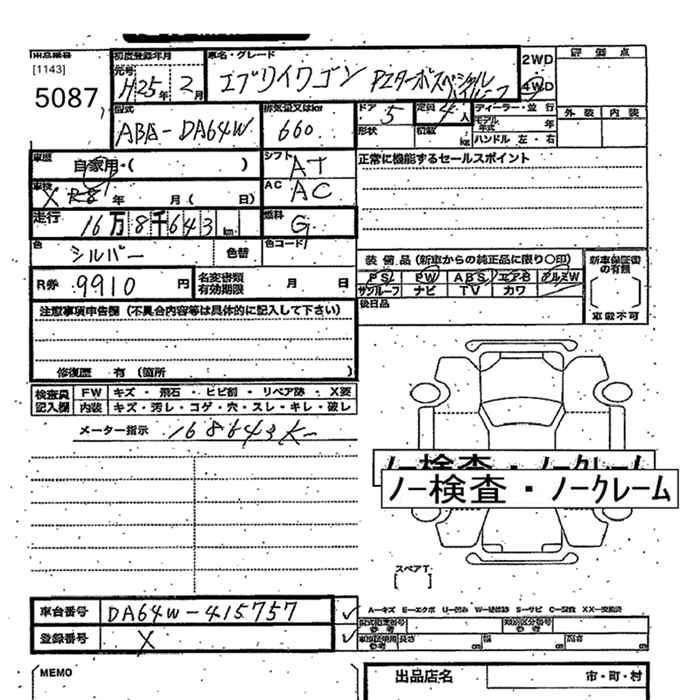 出品番号 初度登録年月 車名・グレード 2WD 評価点
[1143] 元号 H25年 2月 エブリイワゴン PZターボスペシャル ハイルーフ 4WD
5087
型式 排気量又はkw ドア 5 定員 4人 ディーラー・並行 外装 内装
ABA-DA64W 660 形状 積載 kg モデル年式 年
ハンドル 左・右
車歴 自家用・( ) シフト AT 正常に機能するセールスポイント
車検 X 年 月 ( 日) AC AC
走行 16万8千643km 燃料 G
色 シルバー 色替 色コード 装備品(新車からの純正品に限り〇印) 新車保証書の有無
R券 9910円 名変書類有効期限 月 日 PS PW ABS エアB アルミW
サンルーフ ナビ TV カワ
後日品 車載不可
注意事項申告欄(不具合内容等は具体的に記入して下さい)
修復歴 有(箇所 )
検査員 FW キズ・飛石・ヒビ割・リペア跡・X要
記入欄 内装 キズ・汚レ・コゲ・穴・スレ・キレ・破レ
メーター指示 168643K
ノー検査・ノークレーム
ノー検査・ノークレーム
スペアT
[ ]
車台番号 DA64W-415757 A-キズ E-エクボ U-凹み W-補修跡 S-サビ C-腐蝕 XX-交換済
登録番号 X 型式指定番号 参考 類別区分番号 参考
長さ cm 幅 cm 高さ cm
MEMO 出品店名 市・町・村